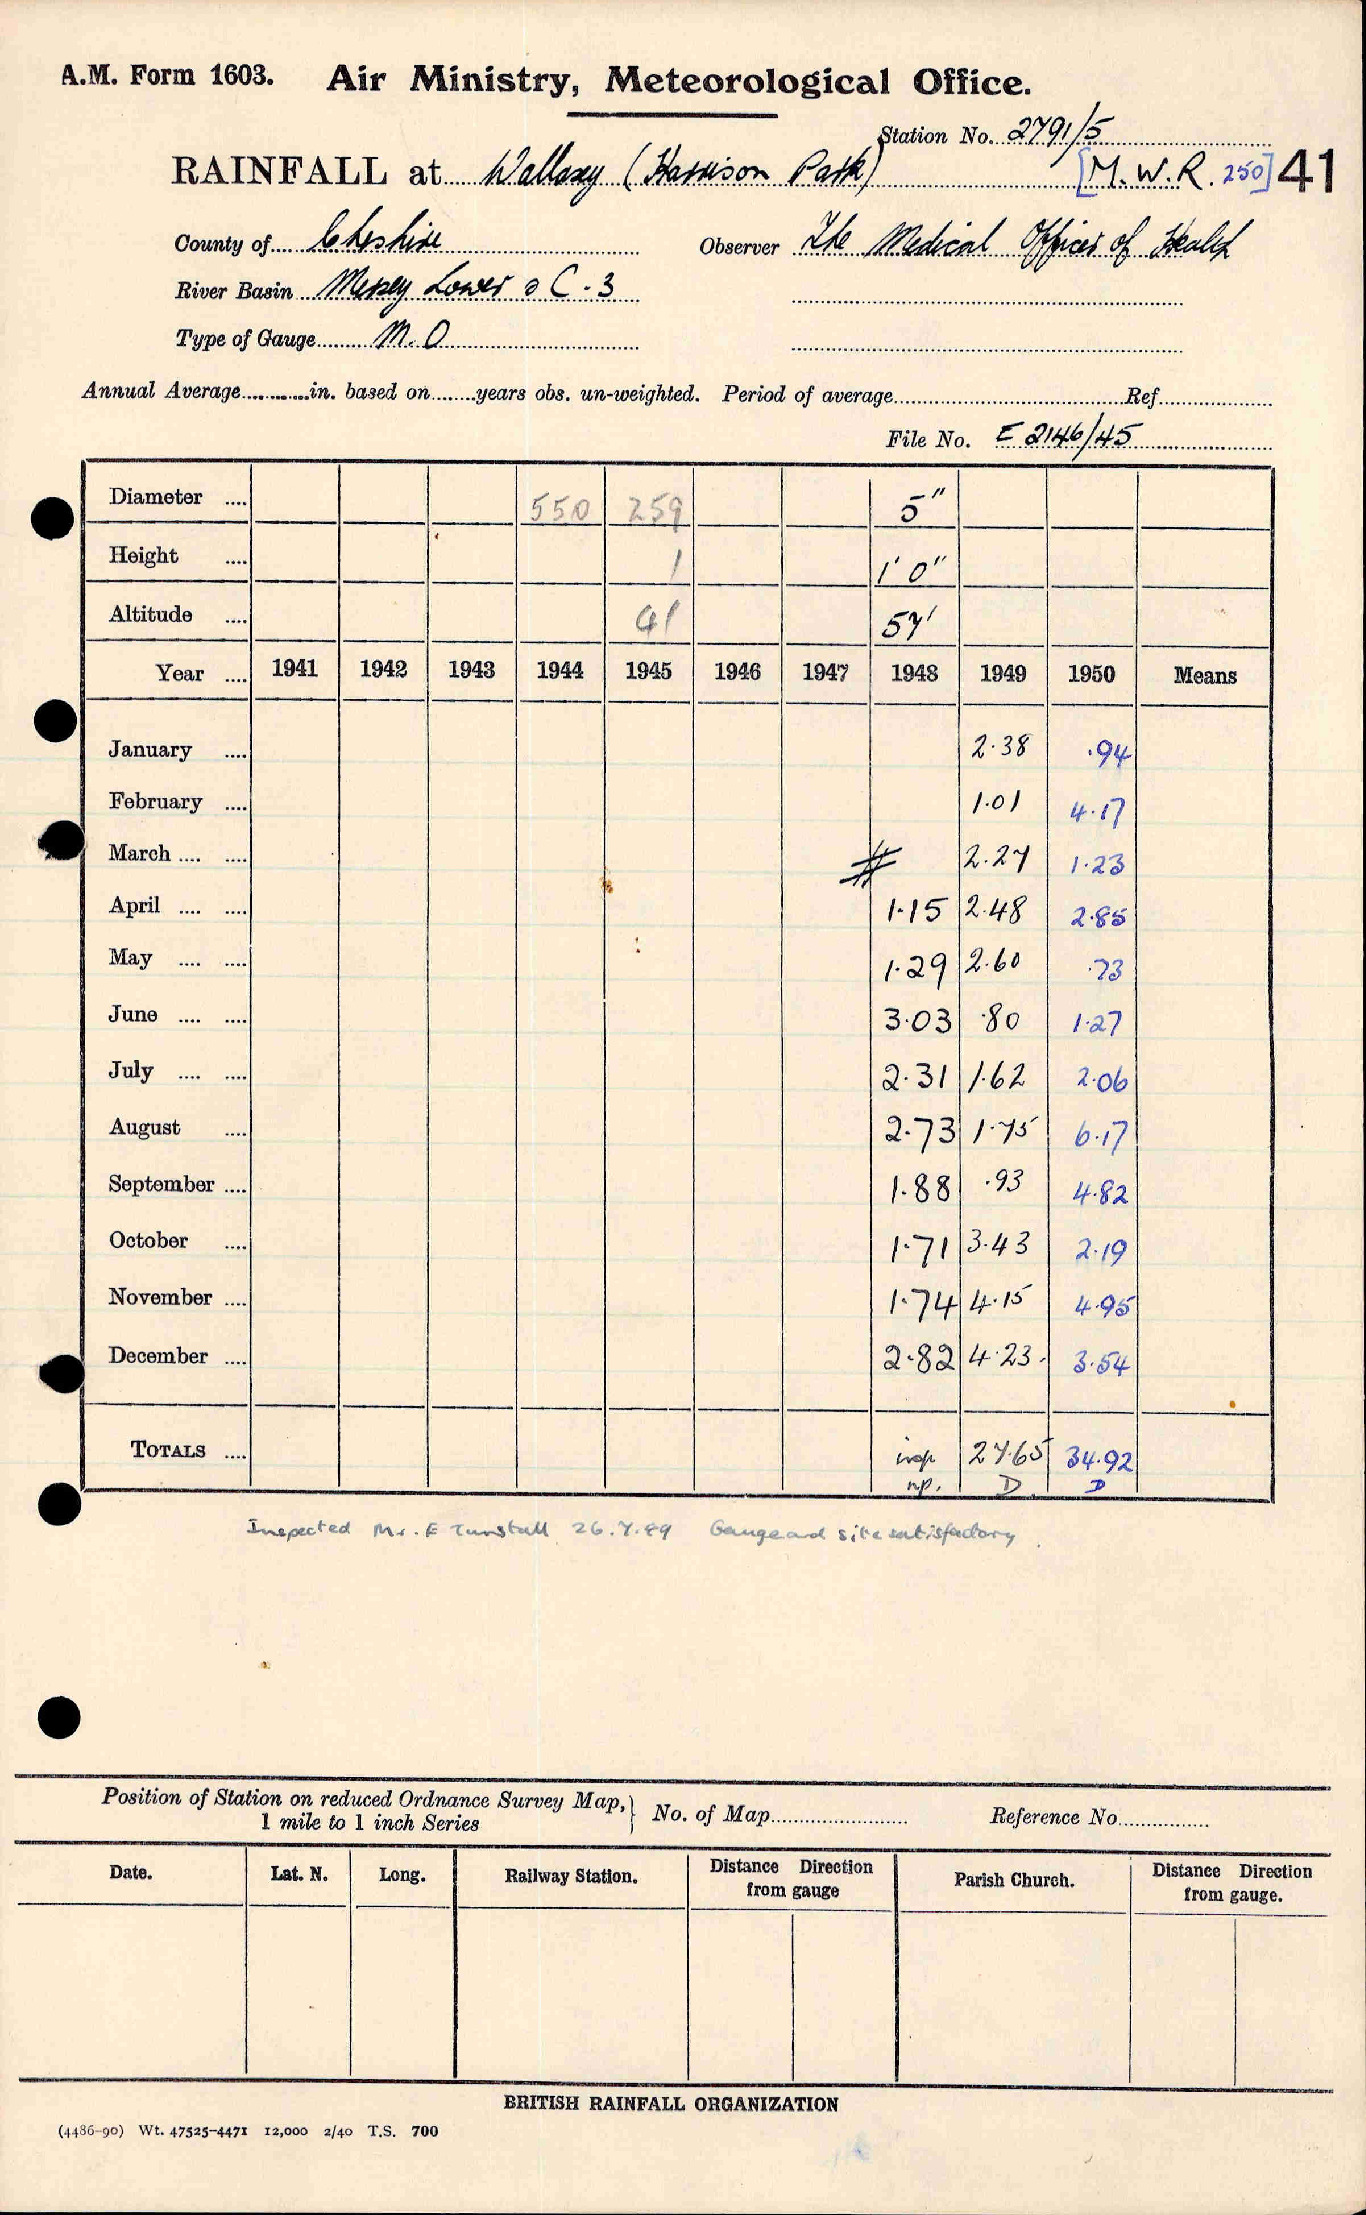 A.M. Form 1603. Air Ministry, Meteorological Office.
Station No. 2791/5
RAINFALL at Wallasey (Harrison Park) [M.W.R. 250] 41
County of Cheshire Observer The Medical Officer of Health
River Basin Mersey Lower & C-3
Type of Gauge M.O
Annual Average in. based on years obs. un-weighted. Period of average Ref
File No. E 2146/45
Diameter 550 259 5"
Height 1 1' 0"
Altitude 41 57'
Year 1941 1942 1943 1944 1945 1946 1947 1948 1949 1950 Means
January 2.38 .94
February 1.01 4.17
March # 2.27 1.23
April 1.15 2.48 2.85
May 1.29 2.60 .73
June 3.03 .80 1.27
July 2.31 1.62 2.06
August 2.73 1.75 6.17
September 1.88 .93 4.82
October 1.71 3.43 2.19
November 1.74 4.15 4.95
December 2.82 4.23. 3.54
TOTALS 27.65 34.92
np. D. D
Inspected Mr. E Tunstall 26.7.49 Gauge and site satisfactory.
Position of Station on reduced Ordnance Survey Map,
1 mile to 1 inch Series } No. of Map Reference No
Date. Lat. N. Long. Railway Station. Distance from gauge Direction Parish Church. Distance Direction from gauge.
BRITISH RAINFALL ORGANIZATION
(4486-90) Wt. 47525-4471 12,000 2/40 T.S. 700